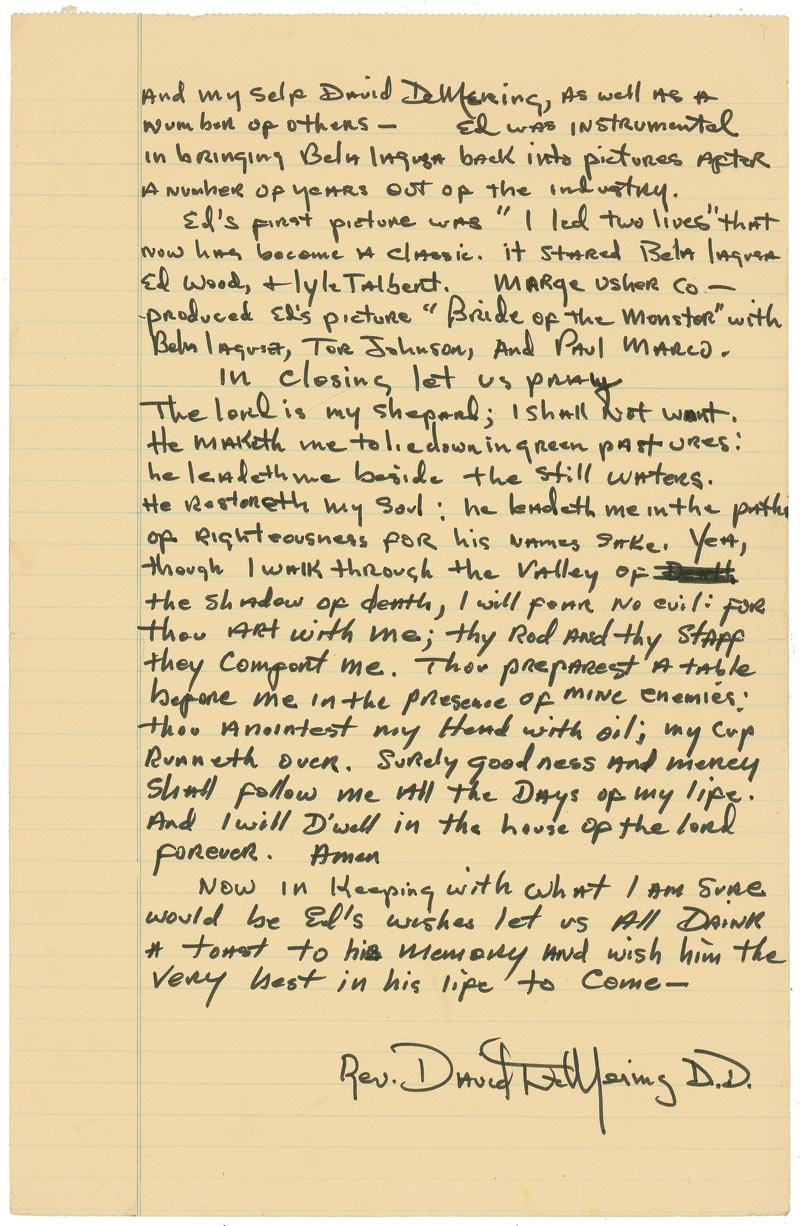 And my self David DeMering, As well as a
number of others — Ed was instrumental
in bringing Bela lagusa back into pictures after
a number of years out of the industry.
Ed's first picture was "I led two lives" that
now has become a classic. it stared Bela lagusa
Ed Wood, + lyle Talbert. Marge Usher Co —
produced Ed's picture "Bride of the Monster" with
Bela lagusa, Tor Johnson, and Paul Marco.
In closing let us pray
The lord is my shepard; I shall not want.
He maketh me to lie down in green pastures:
he leadeth me beside the still waters.
He restoreth my soul: he leadeth me in the paths
of righteousness for his names sake. Yea,
though I walk through the valley of
the shadow of death, I will fear no evil: for
thou art with me; thy rod and thy staff
they comfort me. Thou preparest a table
before me in the presence of mine enemies:
thou anointest my head with oil; my cup
runneth over. Surely goodness and mercy
shall follow me all the days of my life.
And I will D'well in the house of the lord
forever. Amen
Now in keeping with what I am sure
would be Ed's wishes let us all drink
a toast to his memory and wish him the
very best in his life to come —
Rev. David DeMering D.D.